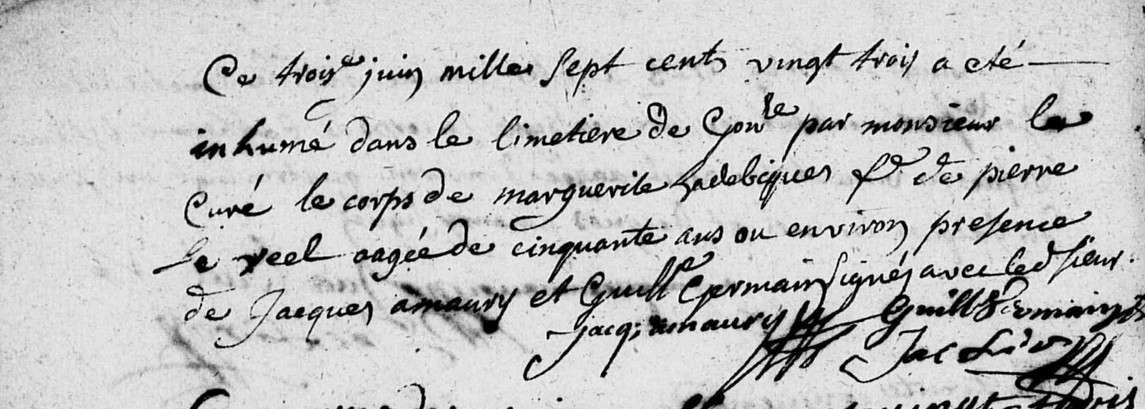 Ce trois.e juin mille sept cents vingt trois a eté
inhumé dans le Cimetiere de Gou.le par monsieur le
curé le corps de marguerite f.e de pierre
Le reel aagée de cinquante ans ou environ presence
de Jacques amaury et Guill.e Germain signés avec led. sieur
jacq; amaury Guill Germain
Jac